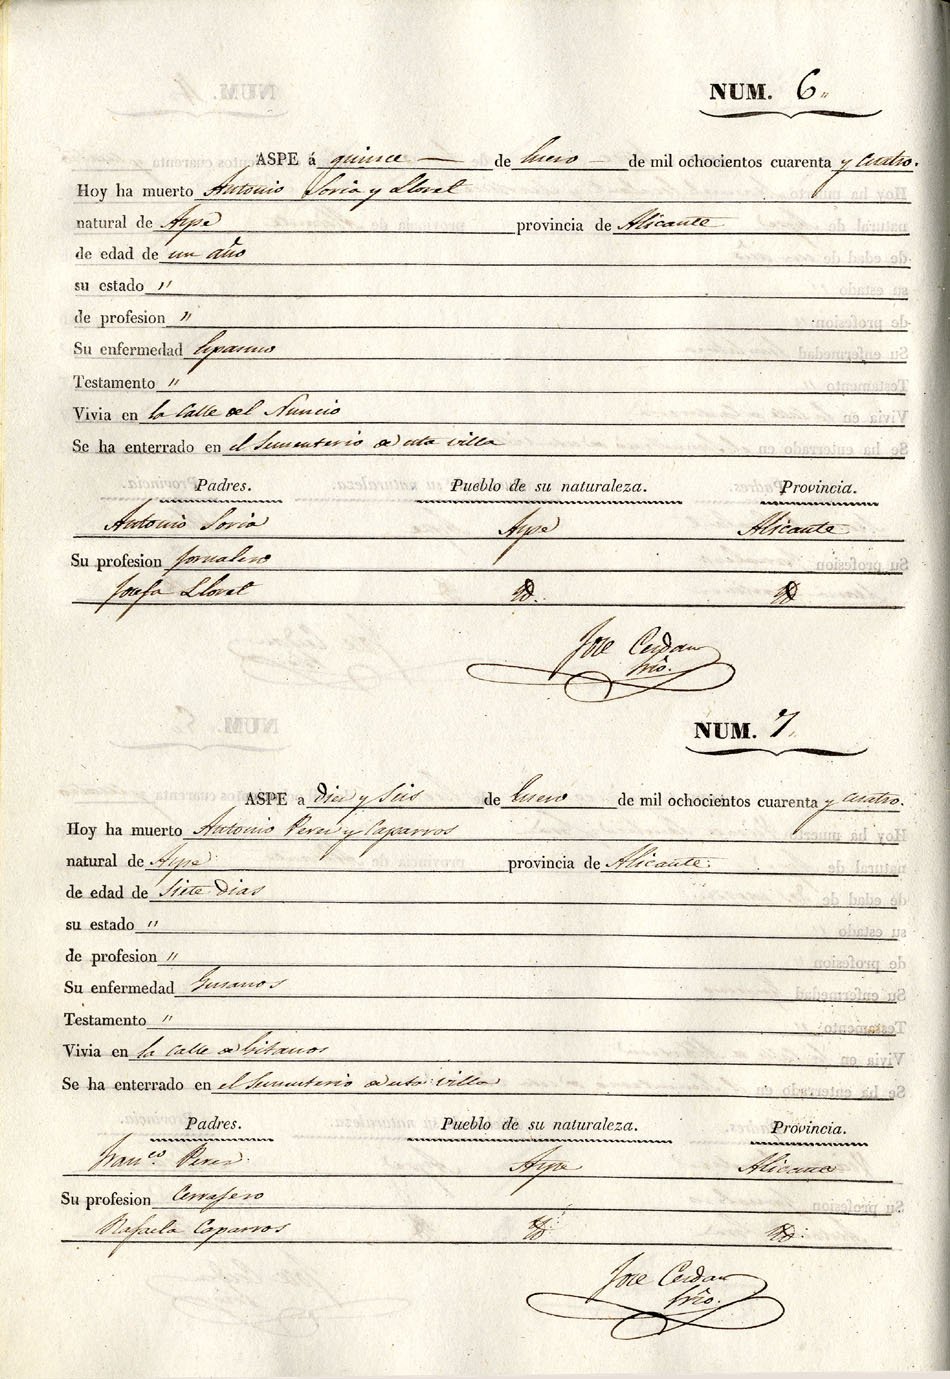 NUM. 6.
ASPE á quince — de Enero — de mil ochocientos cuarenta y cuatro.
Hoy ha muerto Antonio Soria y Lloret
natural de Aspe provincia de Alicante
de edad de un año
su estado "
de profesion "
Su enfermedad Espasmo
Testamento "
Vivia en la Calle del Nuncio
Se ha enterrado en el Sementerio de esta villa
Padres. Pueblo de su naturaleza. Provincia.
Antonio Soria Aspe Alicante
Su profesion Jornalero
Josefa Lloret Yd. Yd
Jose Cerdan
Srio.
NUM. 7.
ASPE a diez y seis de Enero de mil ochocientos cuarenta y cuatro.
Hoy ha muerto Antonio Perez y Caparros
natural de Aspe provincia de Alicante.
de edad de siete dias
su estado "
de profesion "
Su enfermedad Gusanos
Testamento "
Vivia en la Calle de Gitanos
Se ha enterrado en el Sementerio de esta villa
Padres. Pueblo de su naturaleza. Provincia.
Franco. Perez. Aspe Alicante
Su profesion Cerrajero
Rafaela Caparros Yd. Yd.
Jose Cerdan
Srio.